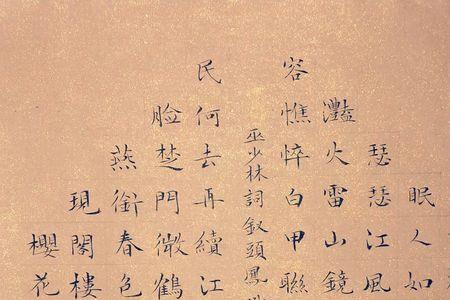 眠人如
瑟瑟江風
灩火雷山鏡
容憔悴白甲聯
巫少林詞釵頭鳳
民何去再續江
脸楚門微鶴
燕銜春色
現閣樓
櫻花